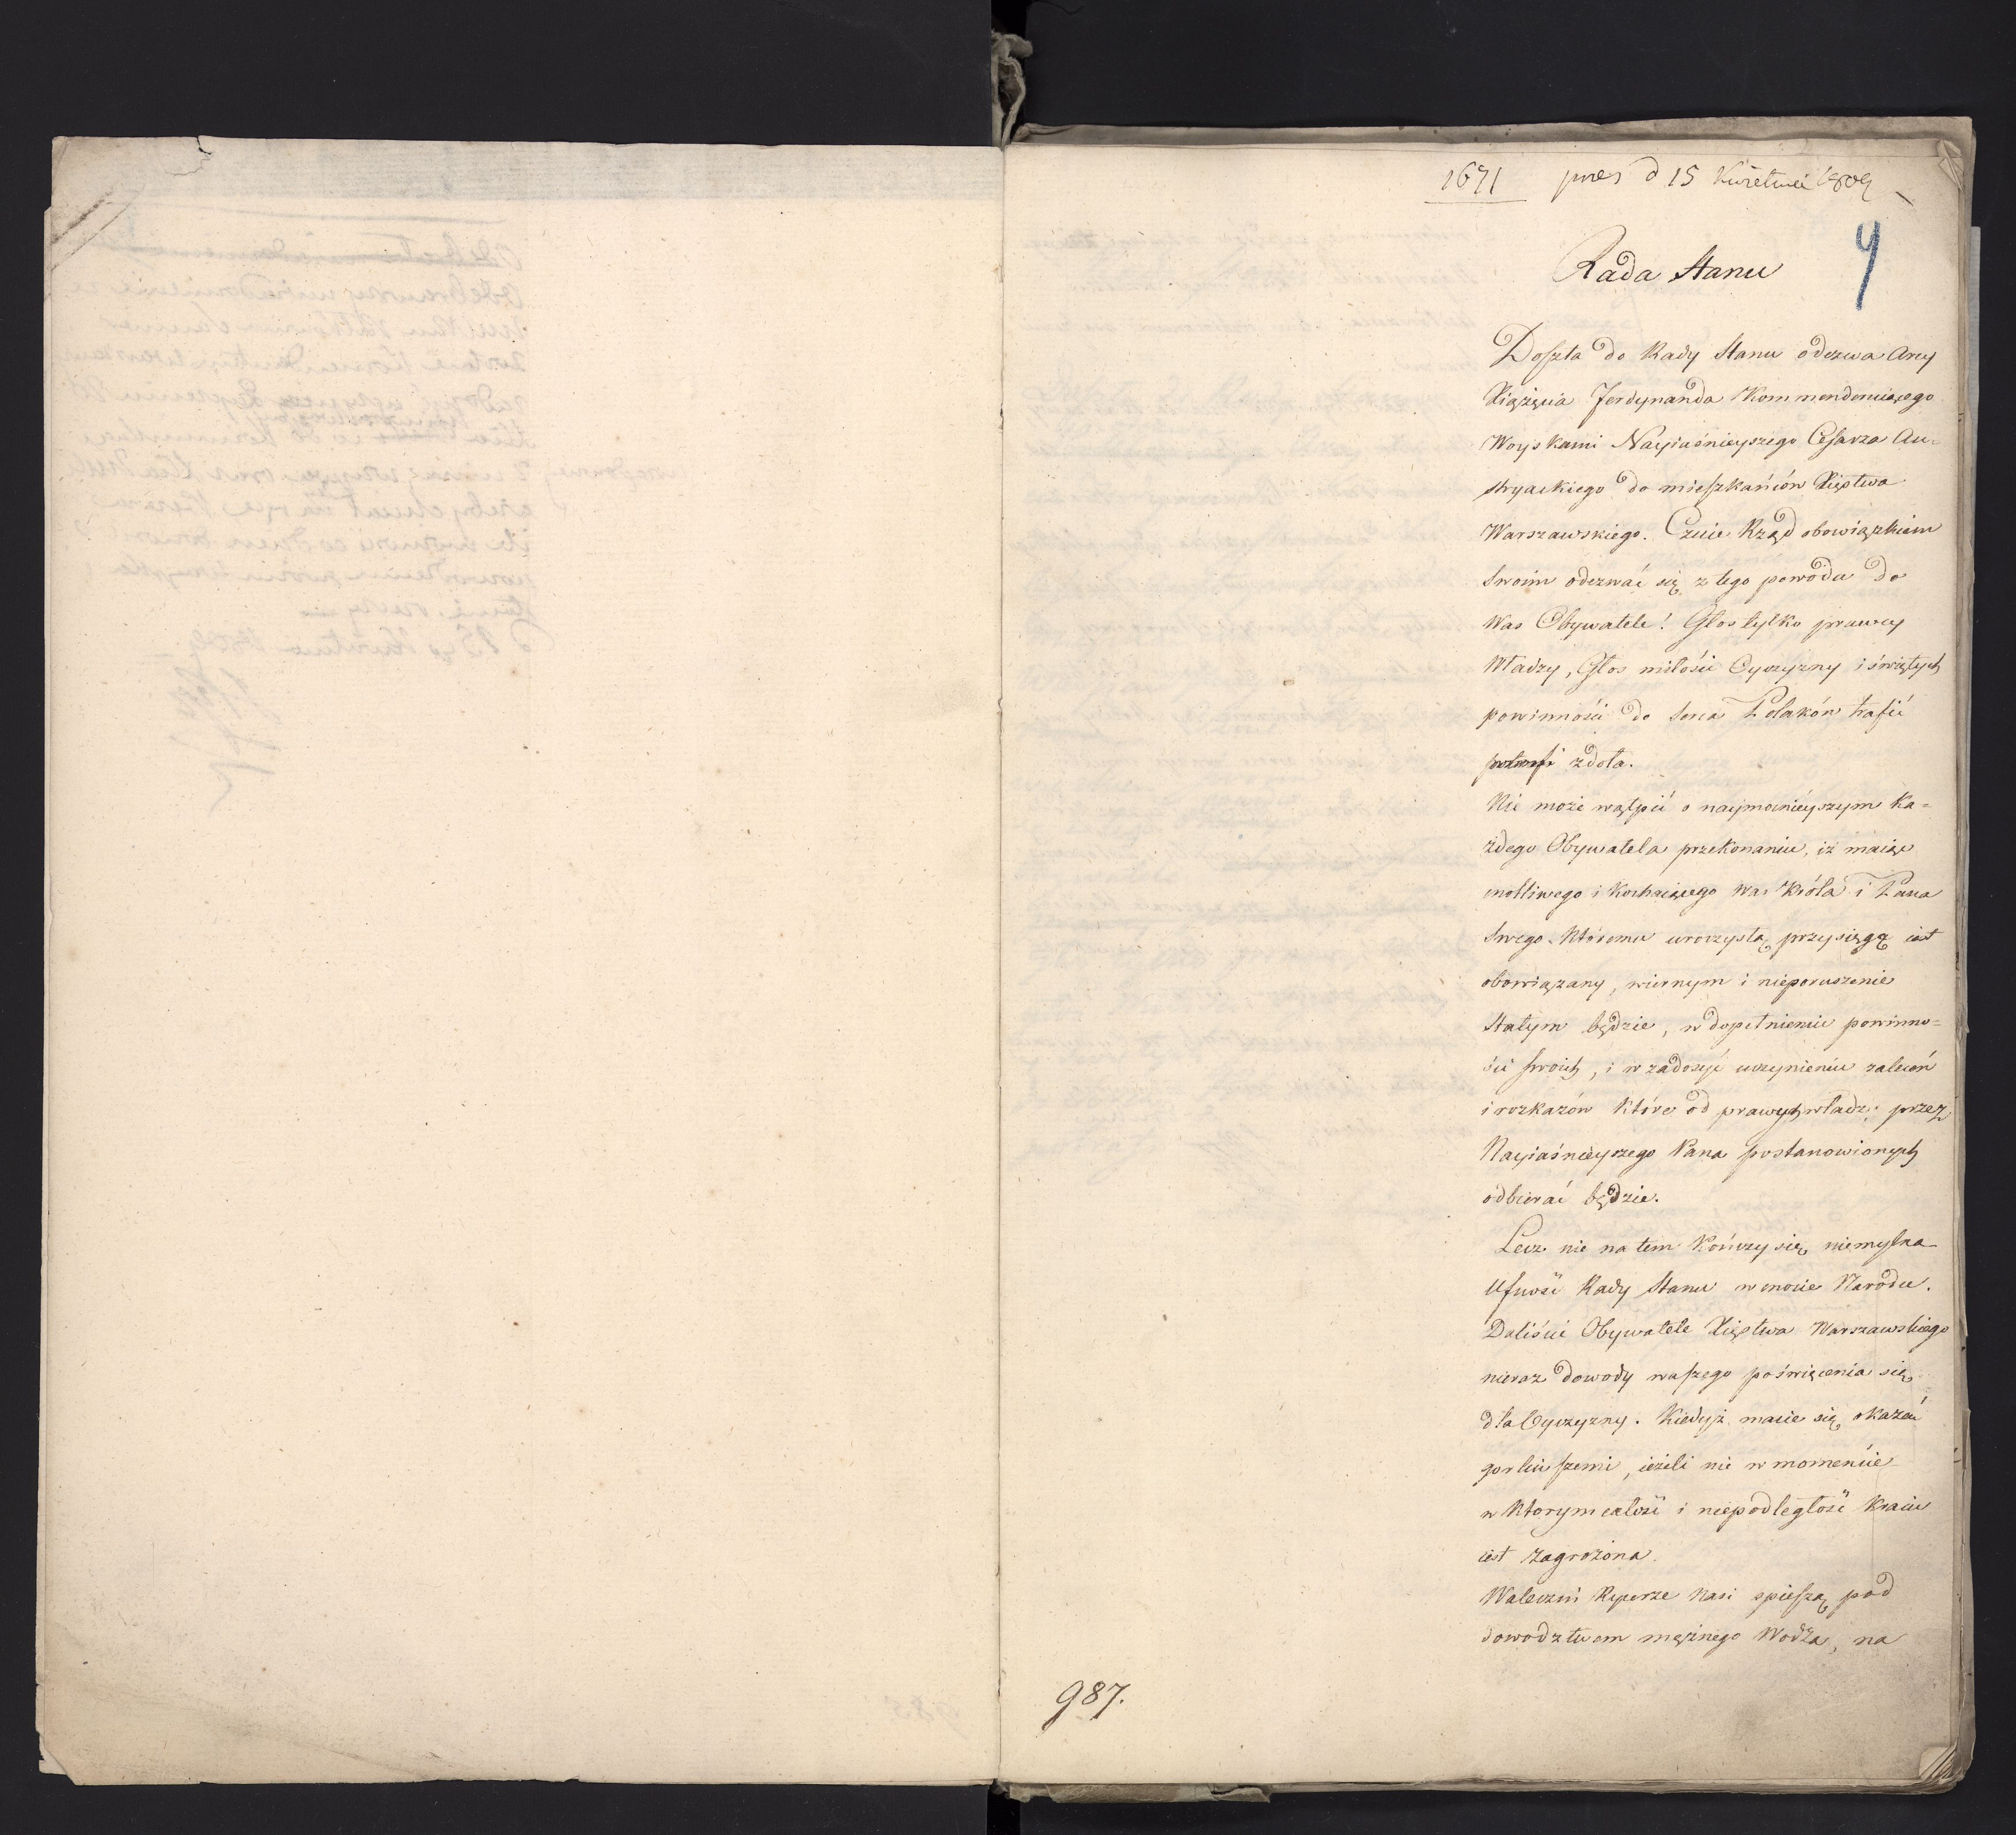 1671 pres d 15 Kwietnia 1809
4
Rada Stanu
Doszła do Rady Stanu odezwa Arcy
Xiążęcia Ferdynanda Kommenderuiącego
Woyskami Nayiaśnieyszego Cesarza Au-
stryackiego do mieszkańców Xięstwa
Warszawskiego. Czuie Rząd obowiązkiem
swoim odezwać się z tego powodu do
Was Obywatele! Głos tylko prawey
Władzy, Głos miłości Oyczyzny i świętych
powinności do serca Polaków trafić
zdoła.
Nie może wątpić o naymocnieyszym ka-
żdego Obywatela przekonaniu, iż maiąc
cnotliwego i kochaiącego Was Króla i Pana
swego któremu uroczystą przysięgą iest
obowiązany, wiernym i nieporuszenie
stałym będzie, w dopełnieniu powinno-
ści swoich, i w zadosyć uczynieniu zaleceń
i rozkazów które od prawych władz, przez
Nayiaśnieyszego Pana postanowionych
odbierać będzie.
Lecz nie na tem kończy się niemylna
Ufność Rady Stanu w cnocie Narodu.
Daliście Obywatele Xięstwa Warszawskiego
nieraz dowody waszego poświęcenia się
dla Oyczyzny. Kiedyż macie się okazać
gorliwszemi, ieżeli nie w momencie
w ktorym całość i niepodległość Kraiu
iest zagrożona.
Waleczni Rycerze Nasi spieszą pod
dowodztwem mężnego Wodza, na
987.